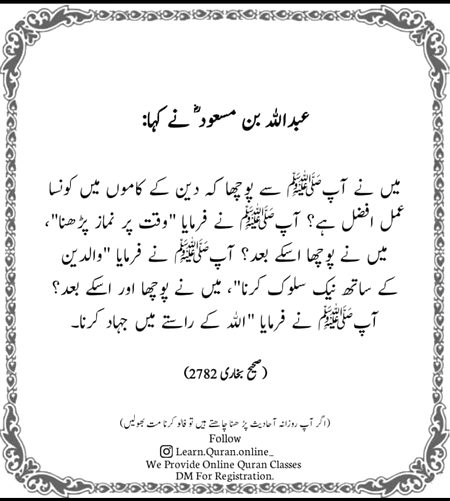 عبداللہ بن مسعودؓ نے کہا:
میں نے آپﷺ سے پوچھا کہ دین کے کاموں میں کونسا
عمل افضل ہے؟ آپﷺ نے فرمایا "وقت پر نماز پڑھنا"،
میں نے پوچھا اسکے بعد؟ آپﷺ نے فرمایا "والدین
کے ساتھ نیک سلوک کرنا"، میں نے پوچھا اور اسکے بعد؟
آپﷺ نے فرمایا "اللہ کے راستے میں جہاد کرنا۔
(صحیح بخاری 2782)
(اگر آپ روزانہ آحادیث پڑھنا چاھتے ہیں تو فالو کرنا مت بھولیں)
Follow
Learn.Quran.online_
We Provide Online Quran Classes
DM For Registration.